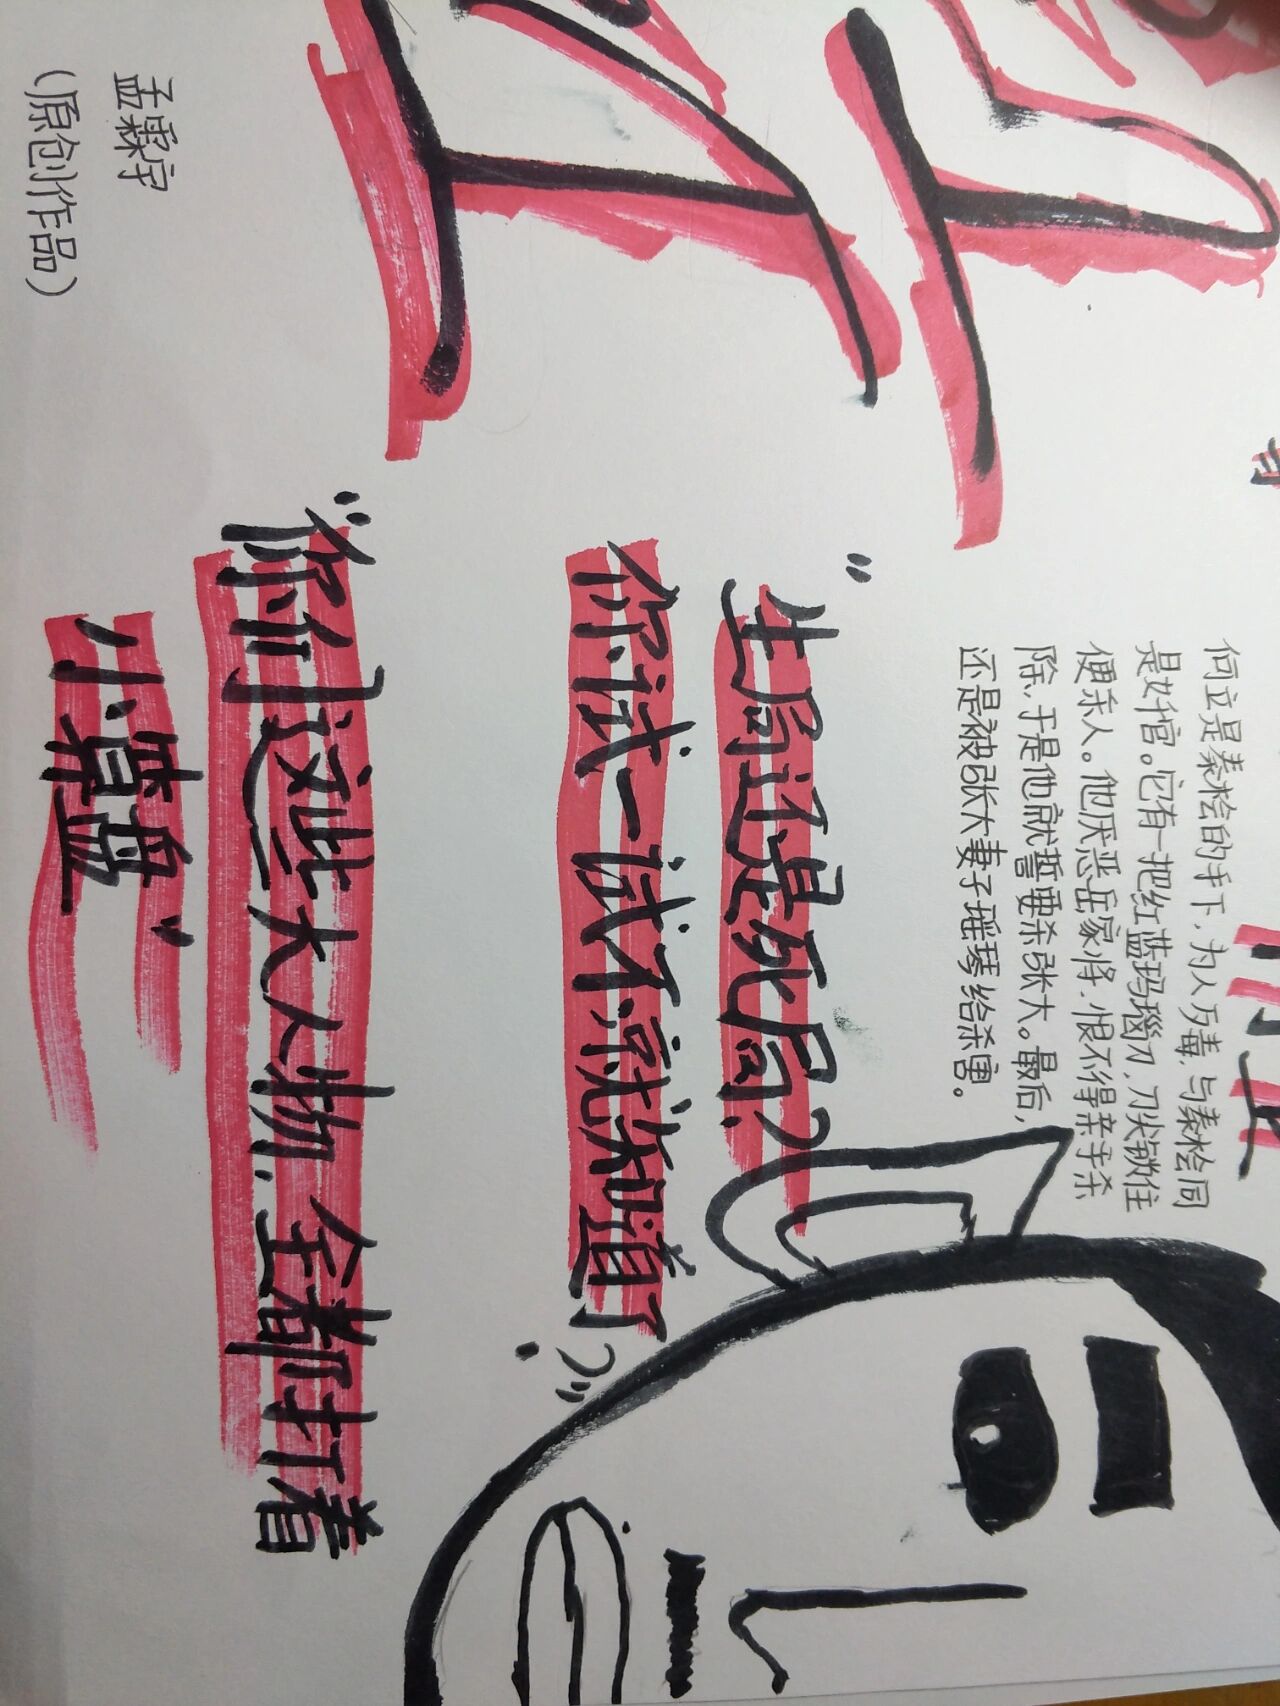 何立是秦桧的手下,为人歹毒,与秦桧同
是奸官。它有一把红蓝玛瑙刀,刀尖锁住
便杀人。他厌恶岳家将,恨不得亲手杀
除,于是他就誓要杀张大。最后,
还是被张大妻子瑶琴给杀害。
“生局还是死局?
你试一试不就知道了?”
“你们这些大人物,全都打着
小算盘”
孟霖宇
(原创作品)